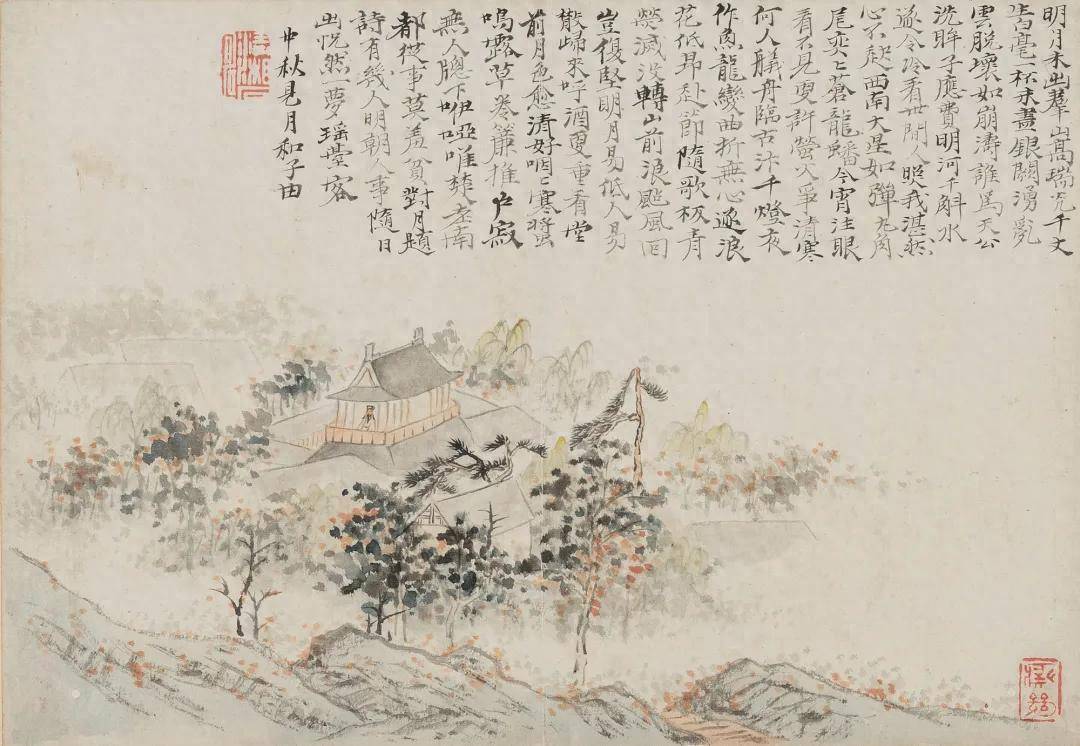 明月未出羣山高瑞光千丈
生白毫杯未盡銀闕湧亂
雲脫壞如崩濤誰為天公
洗眸子應費明河千斛水
遂令冷看世間人照我湛然
心不起西南火星如彈丸角
尾奕〻蒼龍蟠今宵注眼
看不見更許螢火爭清寒
何人艤舟臨古汴千燈夜
作魚龍變曲折無心逐浪
花低昂赴節隨歌板青
熒滅没轉山前浪颭風回
豈復堅明月易低人易
散歸來呼酒更重看堂
前月色愈清好咽〻寒螿
鳴露草卷簾推户寂
無人牕下咿啞唯楚老南
都從事莫羞貧對月題
詩有幾人明朝人事隨日
出恍然夢瑤臺客
中秋見月和子由